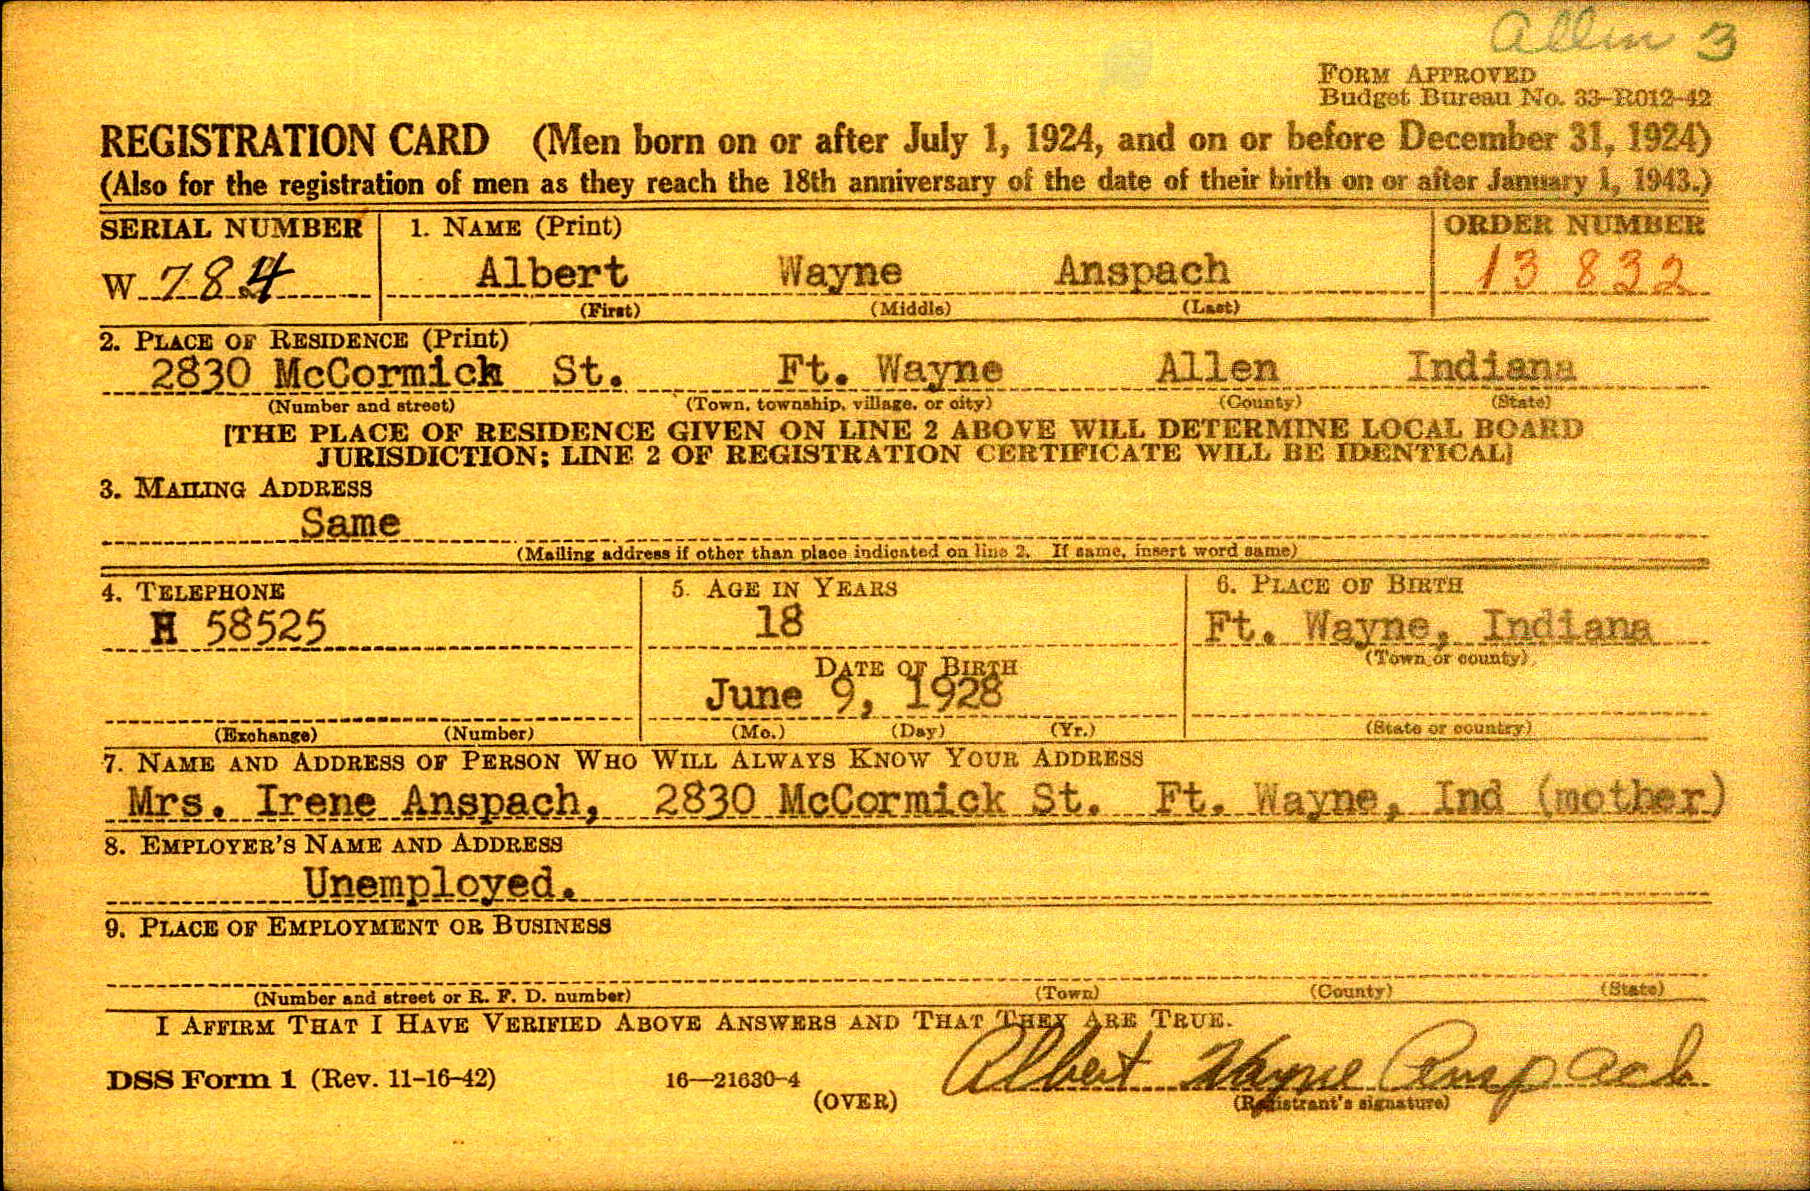 Allen 3
FORM APPROVED
Budget Bureau No. 33-R012-42
REGISTRATION CARD (Men born on or after July 1, 1924, and on or before December 31, 1924)
(Also for the registration of men as they reach the 18th anniversary of the date of their birth on or after January 1, 1943.)
SERIAL NUMBER 1. NAME (Print) ORDER NUMBER
W 784 Albert Wayne Anspach 13 832
(First) (Middle) (Last)
2. PLACE OF RESIDENCE (Print)
2830 McCormick St. Ft. Wayne Allen Indiana
(Number and street) (Town, township, village, or city) (County) (State)
[THE PLACE OF RESIDENCE GIVEN ON LINE 2 ABOVE WILL DETERMINE LOCAL BOARD
JURISDICTION; LINE 2 OF REGISTRATION CERTIFICATE WILL BE IDENTICAL]
3. MAILING ADDRESS
Same
(Mailing address if other than place indicated on line 2. If same, insert word same)
4. TELEPHONE 5. AGE IN YEARS 6. PLACE OF BIRTH
H 58525 18 Ft. Wayne, Indiana
DATE OF BIRTH (Town or county)
June 9, 1928
(Exchange) (Number) (Mo.) (Day) (Yr.) (State or country)
7. NAME AND ADDRESS OF PERSON WHO WILL ALWAYS KNOW YOUR ADDRESS
Mrs. Irene Anspach, 2830 McCormick St. Ft. Wayne, Ind (mother)
8. EMPLOYER'S NAME AND ADDRESS
Unemployed.
9. PLACE OF EMPLOYMENT OR BUSINESS
(Number and street or R. F. D. number) (Town) (County) (State)
I AFFIRM THAT I HAVE VERIFIED ABOVE ANSWERS AND THAT THEY ARE TRUE.
DSS Form 1 (Rev. 11-16-42) 16—21630-4 Albert Wayne Anspach
(OVER) (Registrant's signature)